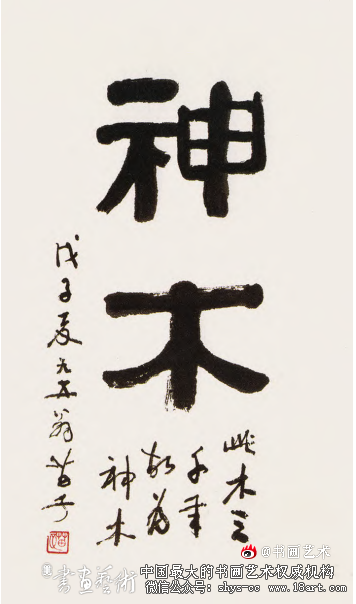 神木
此木三
千年
故为
神木
戊子夏九五翁苗子
@书画艺术
書畫藝術
中国最大的书画艺术权威机构
微信公众号: shys-cc www.18art.com